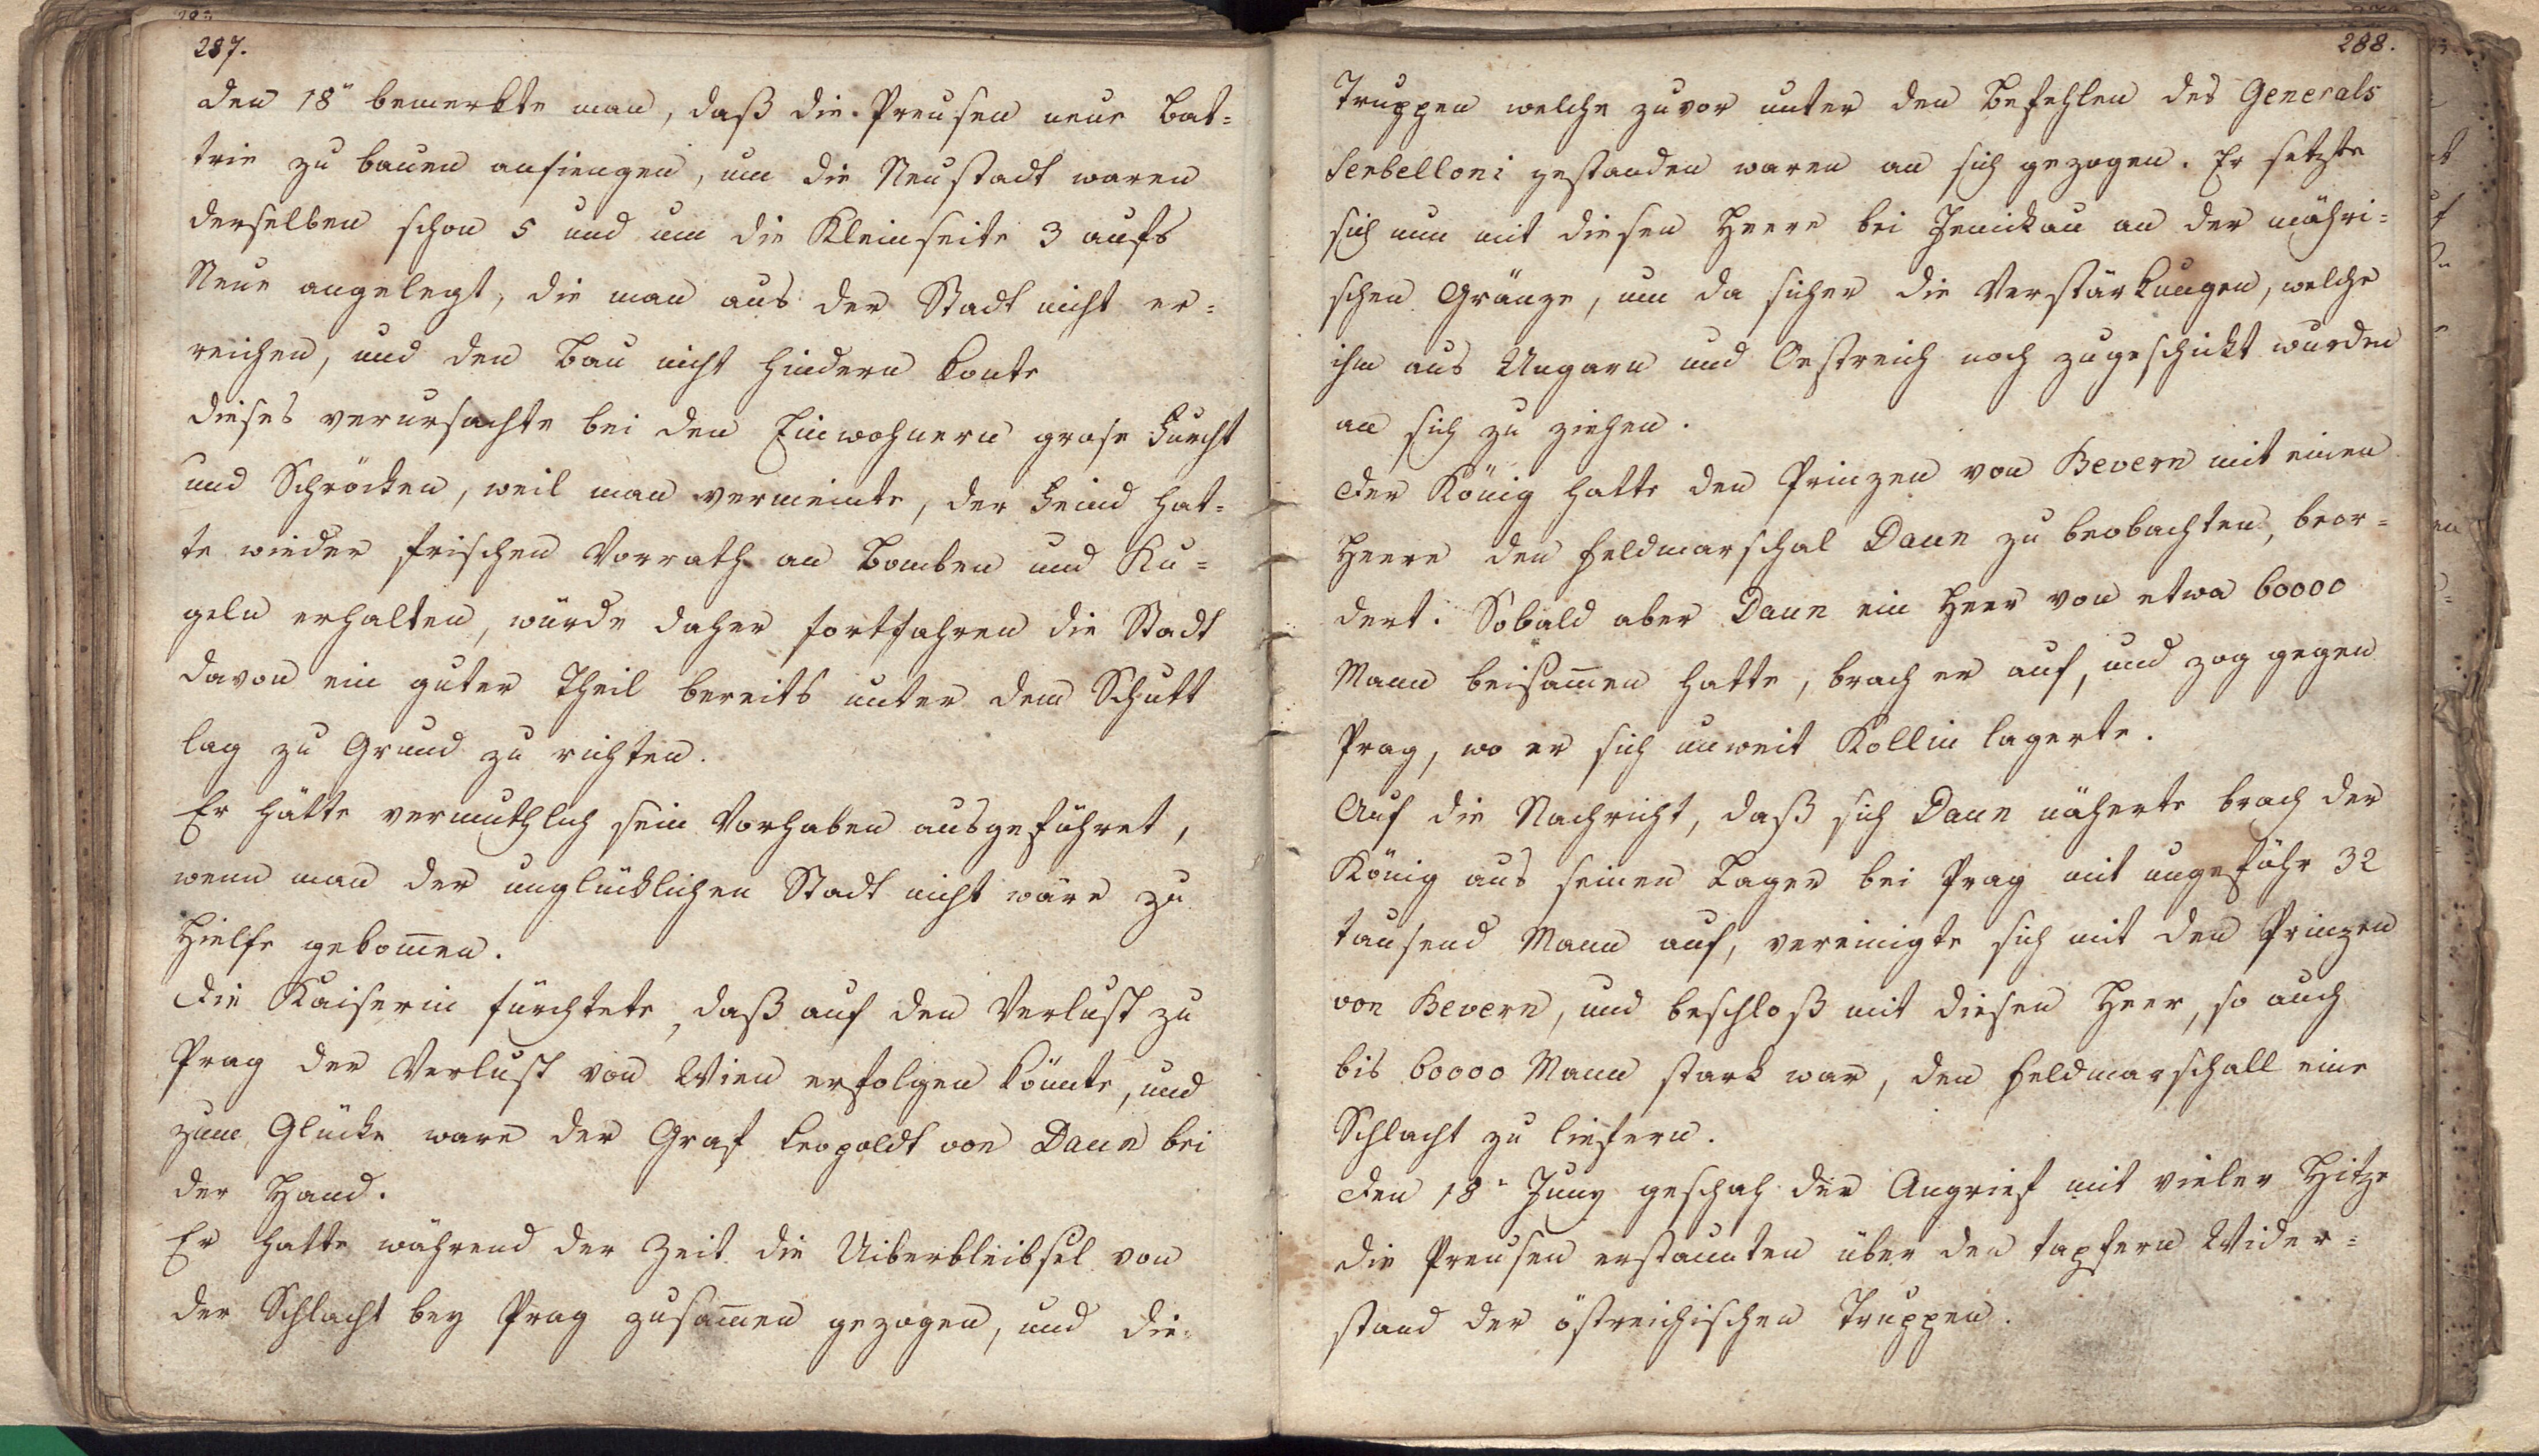 287.
den 18ⁿ bemerkte man, daß die Preusen neue Bat=
trie zu bauen anfiengen, um die Neustadt waren
derselben schon 5 und um die Kleinseite 3 aufs
Neue angelegt, die man aus der Stadt nicht er=
reichen, und den Bau nicht hindern konte
dieses verursachte bei den Einwohnern grose Furcht
und Schröcken, weil man vermeinte, der Feind hat=
te wieder frischen Vorrath an Bomben und Ku=
geln erhalten, würde daher fortfahren die Stadt
davon ein guter Theil bereits unter dem Schutt
lag zu Grund zu richten.
Er hätte vermuthlich sein Vorhaben ausgeführet,
wenn man der unglücklichen Stadt nicht wäre zu
Hielfe gekom̅en.
Die Kaiserin fürchtete, daß auf den Verlust zu
Prag der Verlust von Wien erfolgen könnte, und
zum Glücke ware der Graf Leopoldt von Daun bei
der Hand.
Er hatte während der Zeit die Uiberbleibsel von
der Schlacht bey Prag zusam̅en gezogen, und die=
288.
Truppen welche zuvor unter den Befehlen des Generals
Serbelloni gestanden waren an sich gezogen. Er setzte
sich nun mit diesen Heere bei Jenickau an der mähri=
schen Gränze, um da sicher die Verstärkungen, welche
ihm aus Ungarn und Oestreich noch zugeschickt wurden
an sich zu ziehen.
Der König hatte den Prinzen von Bevern mit einen
Heere den Feldmarschal Daun zu beobachten, beor=
dert. Sobald aber Daun ein Heer von etwa 60000
Mann beisam̅en hatte, brach er auf, und zog gegen
Prag, wo er sich unweit Kollin lagerte.
Auf die Nachricht, daß sich Daun näherte brach der
König aus seinen Lager bei Prag mit ungefähr 32
tausend Mann auf, vereinigte sich mit den Prinzen
von Bevern, und beschloß mit diesen Heer, so auch
bis 60000 Mann stark war, den Feldmarschall eine
Schlacht zu liefern.
Den 18ⁿ Juny geschah der Angrief mit vieler Hitze
die Preusen erstaunten über den tapfern Wider=
stand der östreichischen Truppen.